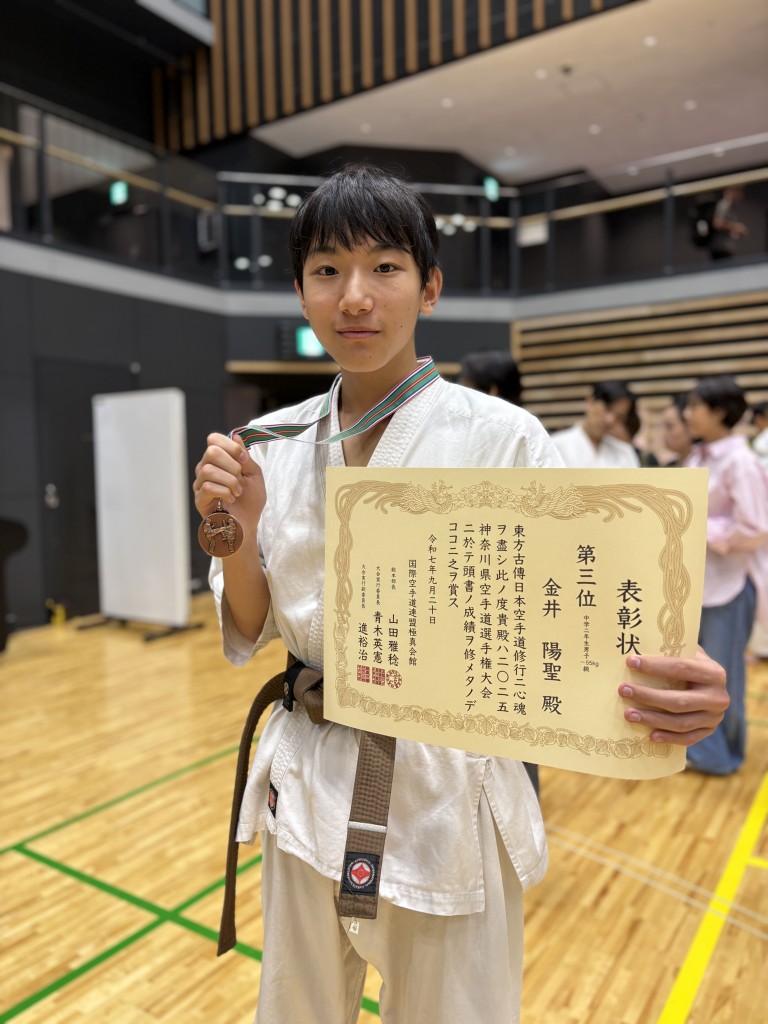 表彰状
第三位
中学三年生男子
-55kg級
金井 陽聖 殿
東方古傳日本空手道修行ニ心魂
ヲ盡シ此ノ度貴殿ハ二〇二五
神奈川県空手道選手権大会
ニ於テ頭書ノ成績ヲ修メタノデ
ココニ之ヲ賞ス
令和七年九月二十日
国際空手道連盟極真会館
山田雅稔
大会実行委員長 青木英憲
大会実行副委員長 進裕治